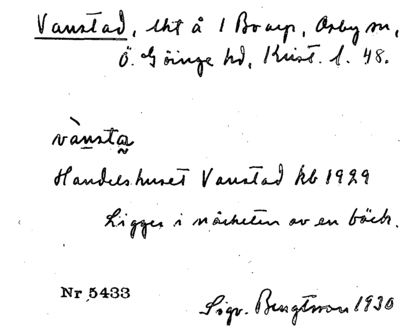 Vanstad, lht å 1 Boarp, Osby sn,
Ö. Göinge hd, Krist. l. 48.
vànsta
Handelshuset Vanstad kb 1929
Ligger i närheten av en bäck.
Nr 5433
Sigv. Bengtsson 1930